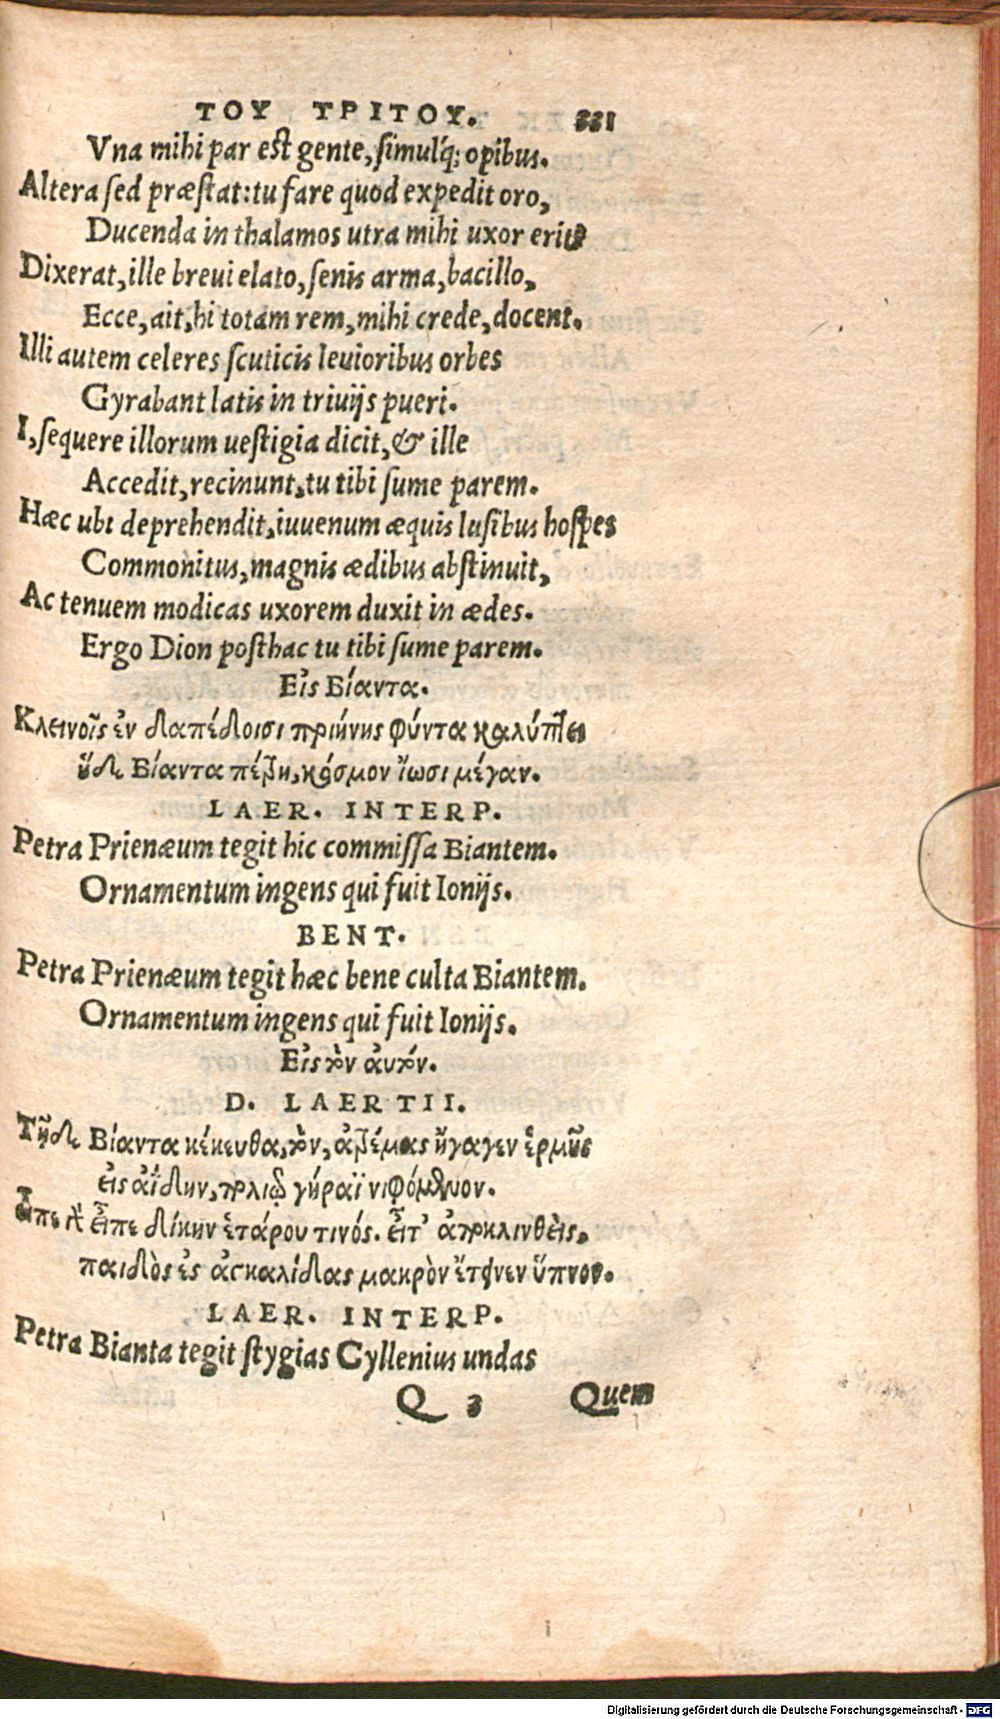 ΤΟΥ ΤΡΙΤΟΥ. 331
Vna mihi par est gente, simulq́; opibus.
Altera sed præstat: tu fare quod expedit oro,
Ducenda in thalamos utra mihi uxor erit?
Dixerat, ille breui elato, senis arma, bacillo,
Ecce, ait, hi totam rem, mihi crede, docent.
Illi autem celeres scuticis leuioribus orbes
Gyrabant latis in triuijs pueri.
I, sequere illorum uestigia dicit, & ille
Accedit, recinunt, tu tibi sume parem.
Hæc ubi deprehendit, iuuenum æquis lusibus hospes
Commonitus, magnis ædibus abstinuit,
Ac tenuem modicas uxorem duxit in ædes.
Ergo Dion posthac tu tibi sume parem.
Εἰς Βίαντα.
Κλεινοῖς ἐν δαπέδοισι πριήνης φύντα καλύπτει
ἥδε Βίαντα πέτρη, κόσμον ἴωσι μέγαν.
LAER. INTERP.
Petra Prienæum tegit hic commissa Biantem.
Ornamentum ingens qui fuit Ionijs.
BENT.
Petra Prienæum tegit hæc bene culta Biantem.
Ornamentum ingens qui fuit Ionijs.
Εἰς τὸν αὐτόν.
D. LAERTII.
Τῇδε Βίαντα κέκευθα, τὸν, ἀτρέμας ἤγαγεν ἑρμῆς
εἰς ἀΐδην, πολιῷ γήραϊ νιφόμενον.
Εἶπε γὰρ εἶπε δίκην ἑτάρου τινός. εἶτ' ἀποκλινθεὶς,
παιδὸς ἐς ἀγκαλίδας μακρὸν ἔτεινεν ὕπνον.
LAER. INTERP.
Petra Bianta tegit stygias Cyllenius undas
Q 3 Quem
Digitalisierung gefördert durch die Deutsche Forschungsgemeinschaft - DFG